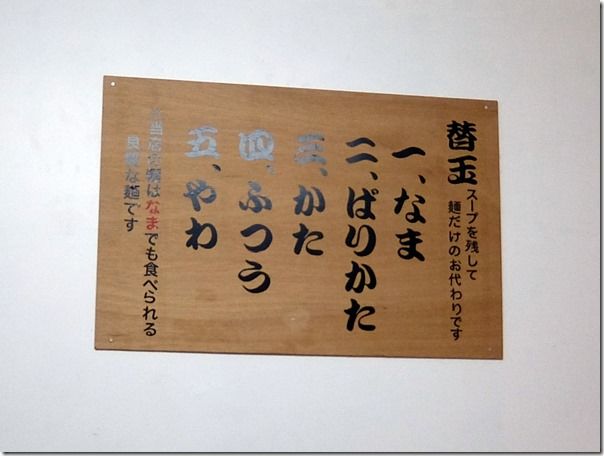 替玉
スープを残して
麺だけのお代わりです
一、なま
二、ばりかた
三、かた
四、ふつう
五、やわ
当店の麺はなまでも食べられる
良質な麺です